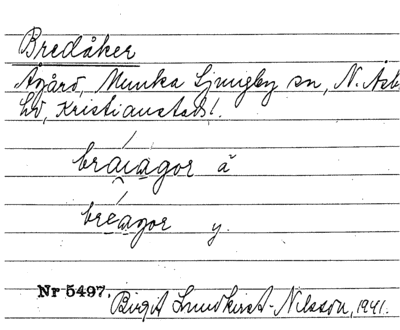 Bredåker
Ägård, Munka Ljungby sn, N. Åsb
hd, Kristianstads l.
braiagor ä
bréagor y.
Nr 5497. Birgit Lundkvist-Nilsson, 1941.